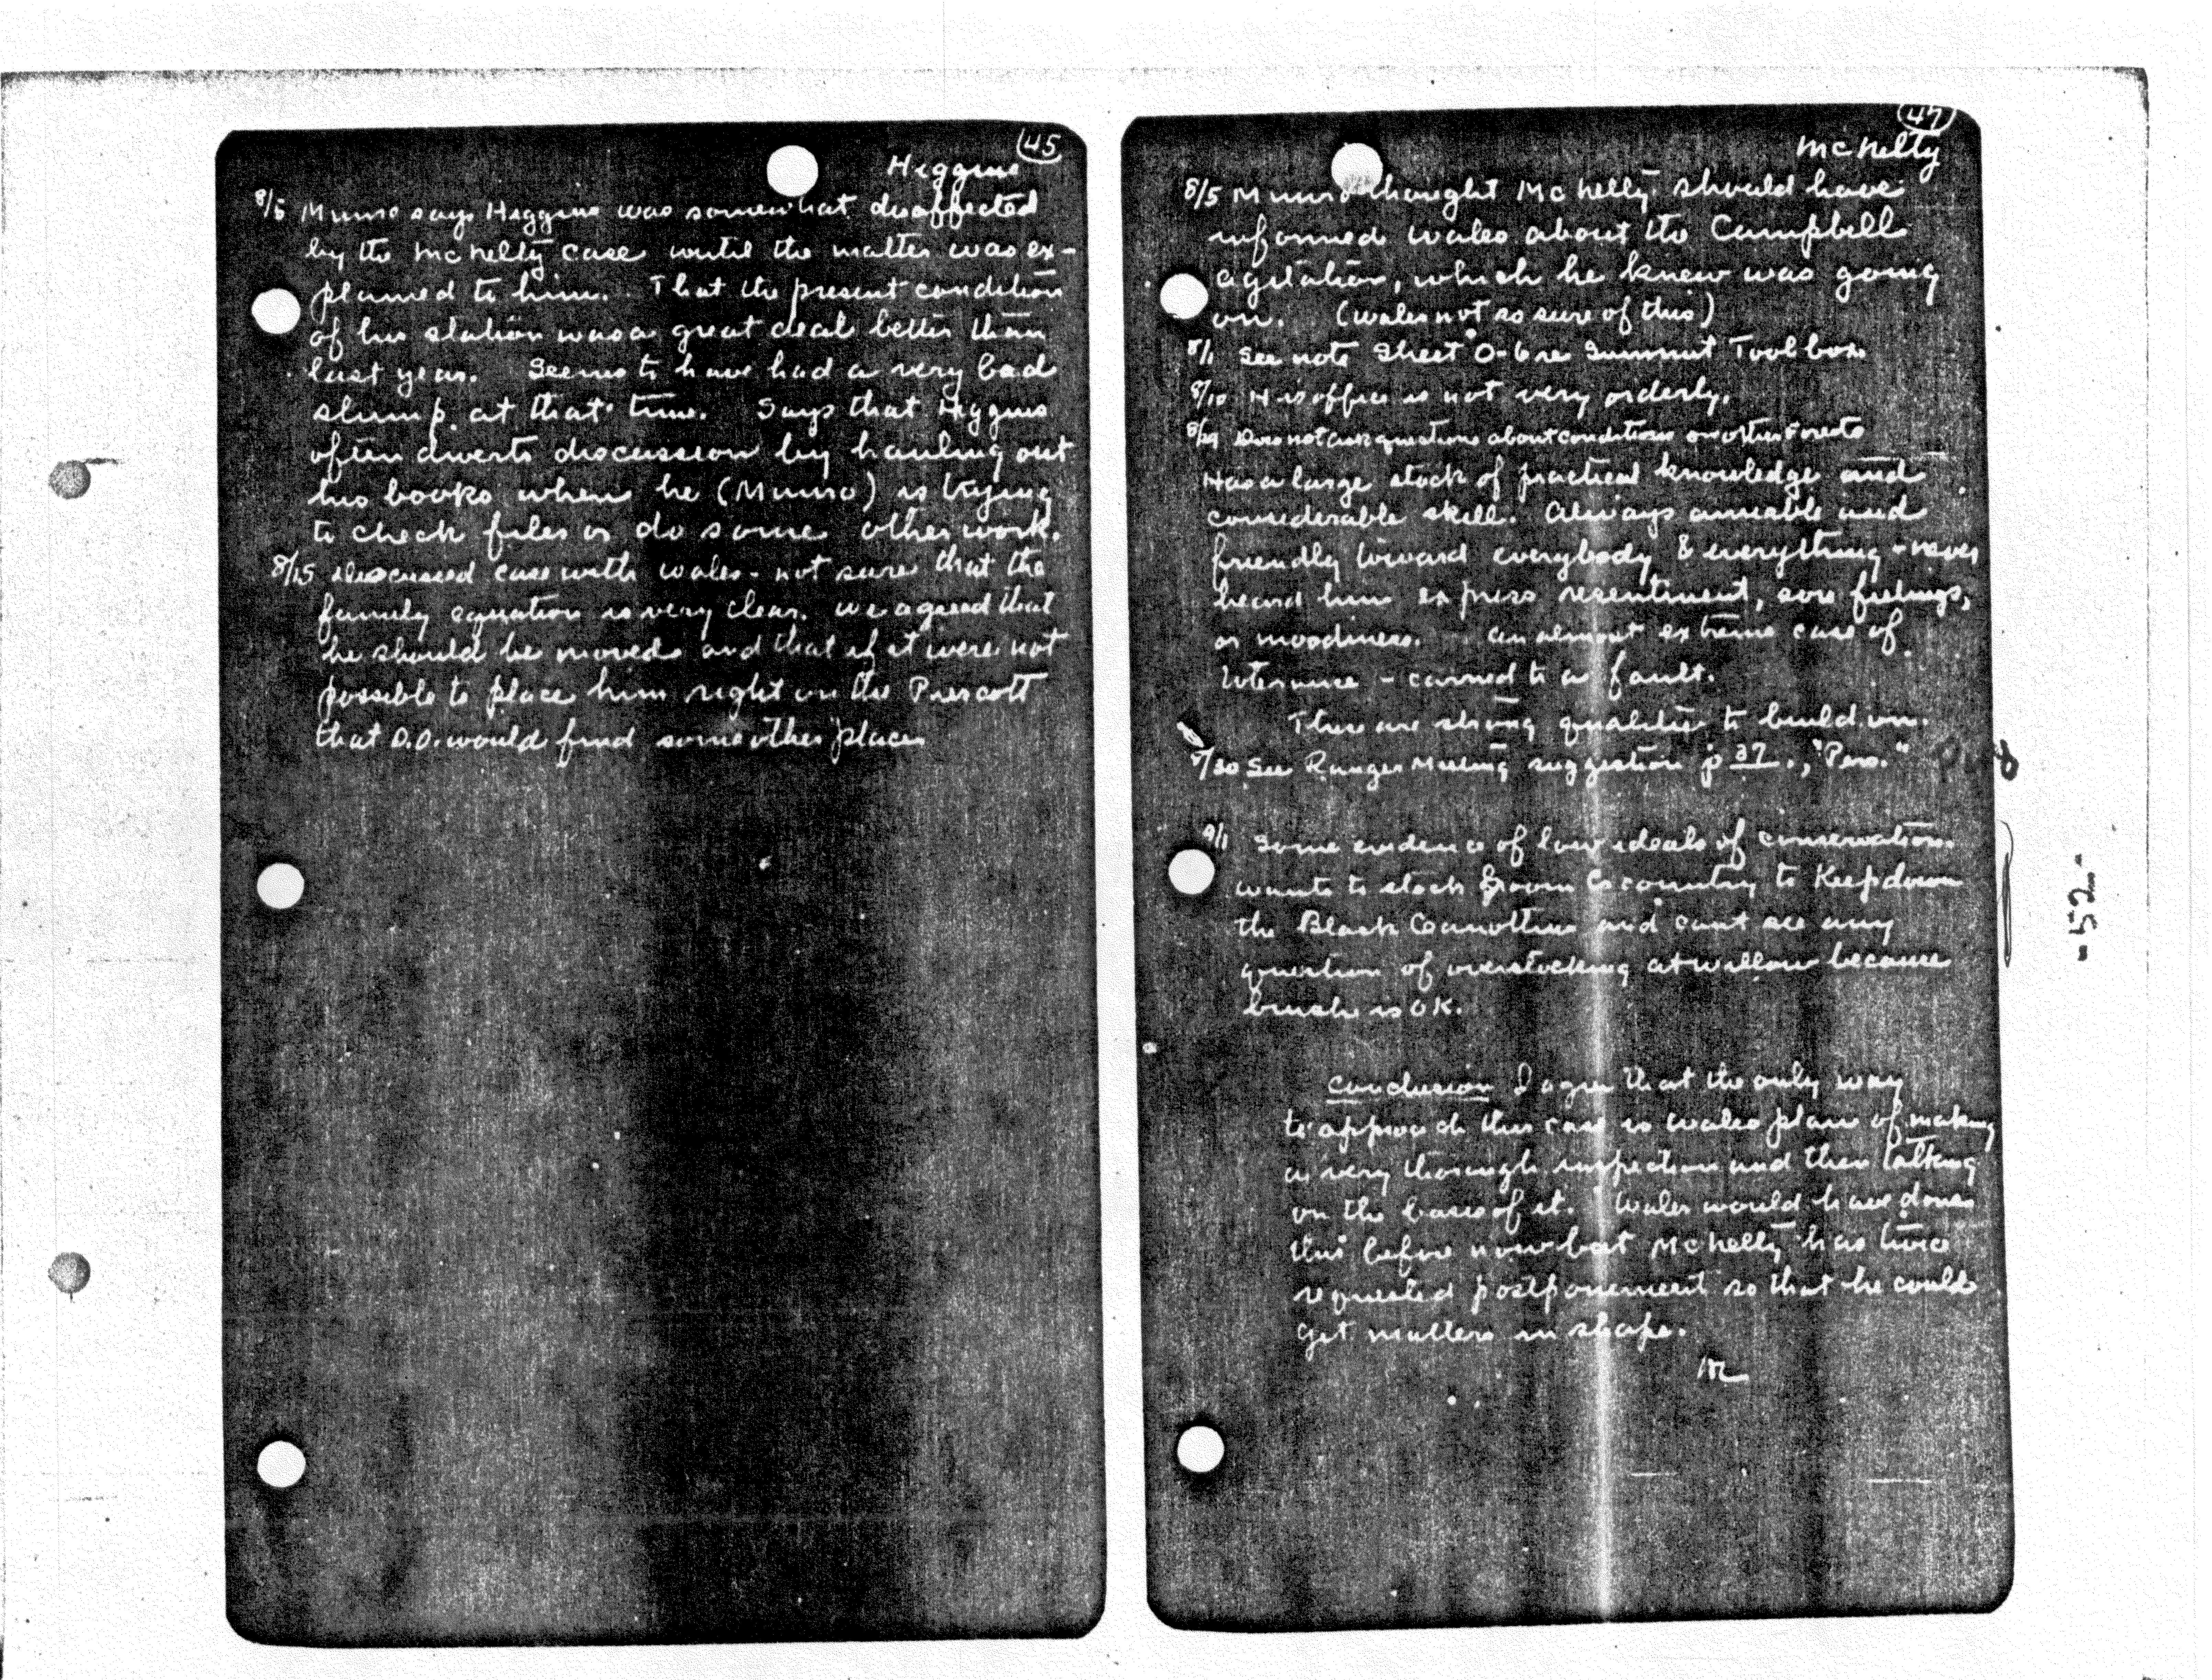 45
Higgins
8/5 Munro says Higgins was somewhat disaffected
by the McNelty case until the matter was ex-
plained to him. That the present condition
of his station was a great deal better than
last year. Seems to have had a very bad
slump at that time. Says that Higgins
often diverts discussion by hauling out
his books when he (Munro) is trying
to check files or do some other work.
8/15 Discussed case with Wales - not sure that the
family equation is very clear. We agreed that
he should be moved and that if it were not
possible to place him right on the Prescott
that D.O. would find some other place
47
McNelty
8/5 Munro thought McNelty should have
informed Wales about the Campbell
agitation, which he knew was going
on. (Wales not so sure of this)
8/1 See note Sheet O-6 re Summit Tool box
8/10 His office is not very orderly.
8/29 Does not ask questions about conditions on other Forests
Has a large stock of practical knowledge and
considerable skill. Always amiable and
friendly toward everybody & everything - never
heard him express resentment, sore feelings,
or moodiness. An almost extreme case of
tolerance - carried to a fault.
These are strong qualities to build on.
8/30 See Ranger Meeting suggestion p 37., "Pers."
9/1 Some evidence of low ideals of conservation.
Wants to stock Groom Cr country to keep down
the Black and cant see any
question of overstocking at Willow because
brush is OK.
Conclusion I agree that the only way
to approach this case is Wales plan of making
a very thorough inspection and then talking
on the basis of it. Wales would have done
this before now but McNelty has twice
requested postponement so that he could
get matters in shape.
-52-